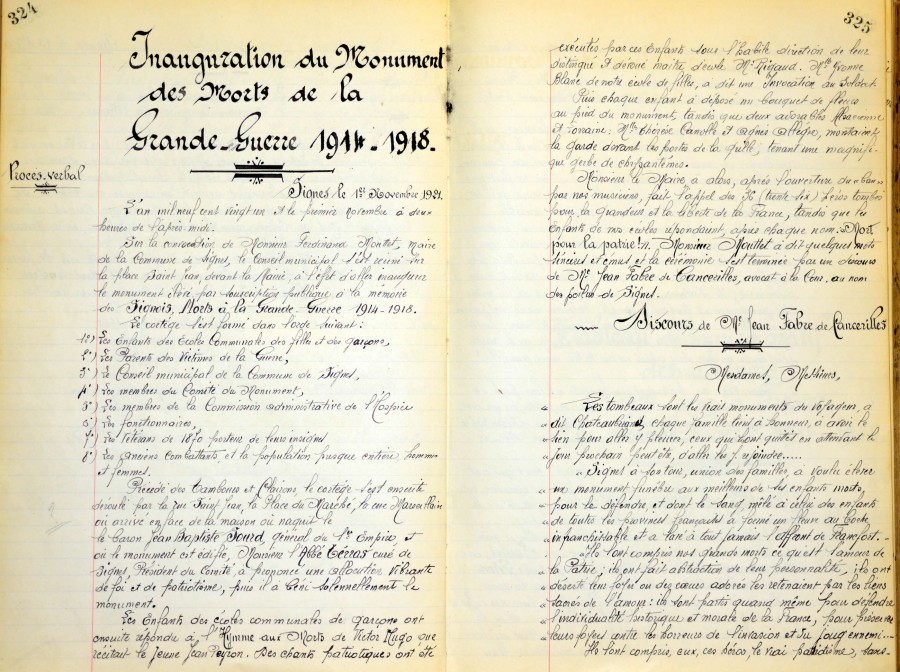 324
Inauguration du Monument
des Morts de la
Grande-Guerre 1914-1918.
Procès-verbal
Signes le 1er Novembre 1921.
L'an mil neuf cent vingt un et le premier novembre à deux
heures de l'après midi.
Sur la convocation de Monsieur Ferdinand Mouttet, maire
de la Commune de Signes, le Conseil municipal s'est réuni sur
la place Saint Jean, devant la Mairie, à l'effet d'aller inaugurer
le monument élevé par souscription publique à la mémoire
des Signois, Morts à la Grande-Guerre 1914-1918.
Le cortège s'est formé dans l'ordre suivant:
1°) Les Enfants des Ecoles Communales des filles et des garçons,
2°) Les Parents des Victimes de la Guerre,
3°) Le Conseil municipal de la Commune de Signes,
4°) Les membres du Comité du Monument,
5°) Les membres de la Commission administrative de l'Hospice
6°) Les fonctionnaires,
7°) Les Vétérans de 1870 porteurs de leurs insignes
8°) Les anciens Combattants, et la population presque entière, hommes
et femmes.
Précédé des Tambours et Clairons le cortège s'est ensuite
déroulé par la rue Saint Jean, la Place du Marché, la rue Marseillais
où arrivé en face de la maison où naquit le
le baron Jean Baptiste Jourd, général du 1er Empire, et
où le monument est édifié, Monsieur l'Abbé curé de
Signes, Président du Comité, a prononcé une allocution vibrante
de foi et de patriotisme, puis il a béni solennellement le
monument.
Les Enfants des écoles communales de garçons ont
ensuite répondu à l'Hymne aux Morts de Victor Hugo que
récitait le jeune Jean Peyron. Des chants patriotiques ont été
325
exécutés par ces Enfants sous l'habile direction de leur
distingué et dévoué maître d'école Mr Rigaud. Mlle Yvonne
Blanc de notre école de filles, a dit une Invocation au Soldat.
Puis chaque enfant a déposé un bouquet de fleurs
au pied du monument, tandis que deux adorables Alsacienne
et Lorraine: Mlles Thérèse Camolle et Agnès Allègre, montaient
la garde devant les portes de la grille, tenant une magnifi-
que gerbe de chrysantèmes.
Monsieur le Maire, a alors, après l'ouverture du "ban"
par nos musiciens, fait l'appel des 36 (trente six) héros tombés
pour la grandeur et la liberté de la France, tandis que les
enfants de nos écoles répondaient, après chaque nom: "Mort
pour la patrie!". Monsieur Mouttet a dit quelques mots
sincères et émus et la cérémonie s'est terminée par un discours
de Mr Jean Fabre de Cancerilles, avocat à la Cour, au nom
des poilus de Signes.
Discours de Mr Jean Fabre de Cancerilles
Mesdames, Messieurs,
" Les tombeaux sont les vrais monuments du voyageur, a
" dit Chateaubriand, chaque famille tient à honneur, à avoir le
" sien pour aller y pleurer, ceux qui l'ont quittés en attendant le
" jour prochain peut être, d'aller les y rejoindre.....
" Signes à son tour, union des familles, a voulu élever
" un monument funèbre aux meilleurs de ses enfants morts,
" pour le défendre, et dont le sang, mêlé à celui des enfants
" de toutes les provinces françaises a formé un fleuve au Boche
" infranchissable et a lavé à tout jamais l'affront de Francfort.-
" Ils ont compris nos grands morts ce qu'est l'amour de
" la Patrie; ils ont fait abstraction de leur personnalité, ils ont
" déserté leur foyer où des cœurs adorés les retenaient par les liens
" sacrés de l'amour: ils sont partis quand même pour défendre
" l'individualité historique et morale de la France, pour préserver
" leurs foyers contre les horreurs de l'invasion et du joug ennemi....
" Ils ont compris, eux, ces héros, le vrai patriotisme, sans